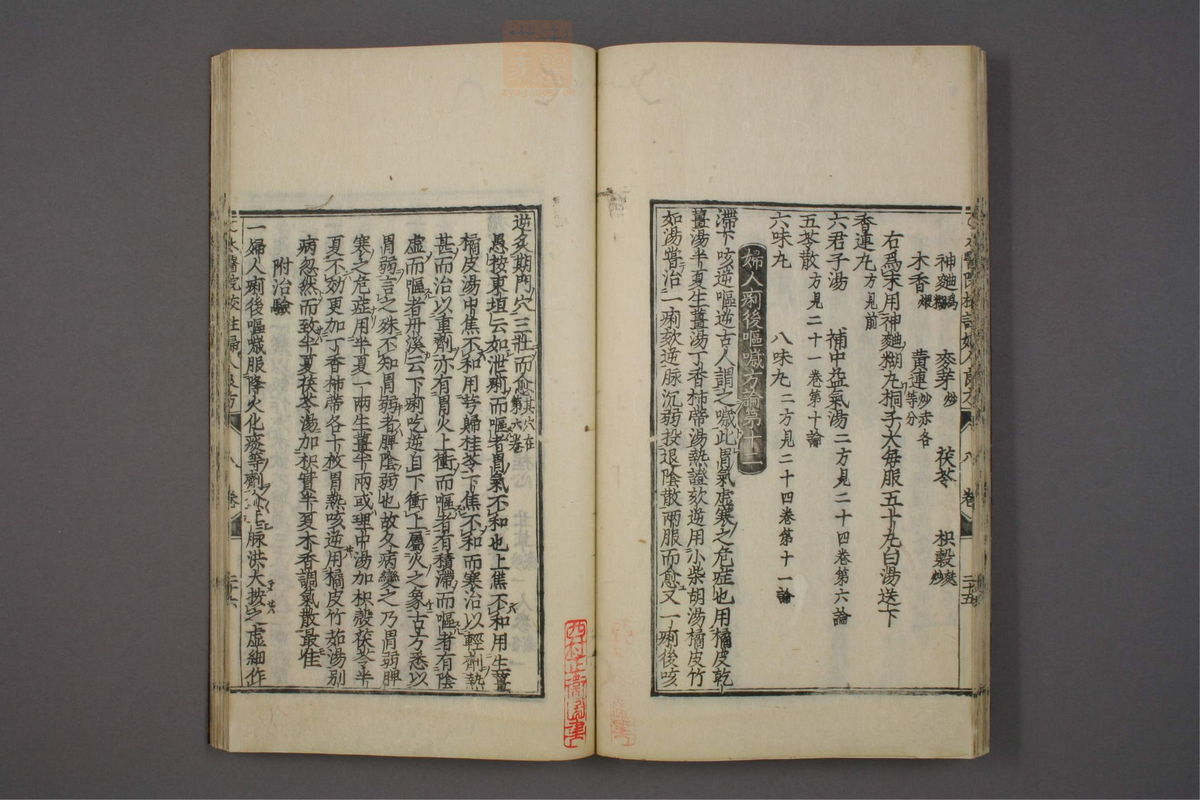 神麯爲糊 麥芽炒 茯苓 枳殼麩炒
木香煨 黃連炒赤各等分
右爲末用神麯糊丸桐子大每服五十丸白湯送下
香連丸方見前
六君子湯 補中益氣湯二方見二十四卷第六論
五苓散方見二十一卷第十論
六味丸 八味丸二方見二十四卷第十一論
婦人痢後嘔噦方論第十二
滯下咳逆嘔逆古人謂之噦此胃氣虛寒之危症也用橘皮乾
薑湯半夏生薑湯丁香柿蒂湯熱證欬逆用小柴胡湯橘皮竹
如湯嘗治一痢欬逆脉沉弱投退陰散兩服而愈又一痢後咳
二十五
逆灸期門穴三壯而愈其穴在第六卷
愚按東垣云如泄痢而嘔者胃氣不和也上焦不和用生薑
橘皮湯中焦不和用芍歸桂苓下焦不和而寒治以輕劑熱
甚而治以重劑亦有胃火上衝而嘔者有積滯而嘔者有陰
虛而嘔者丹溪云下痢吃逆自下衝上屬火之象古方悉以
胃弱言之殊不知胃弱者脾陰弱也故久病變之乃胃弱脾
寒之危症用半夏一兩生薑半兩或理中湯加枳殼茯苓半
夏不効更加丁香柿蒂各十枚胃熱咳逆用橘皮竹茹湯別
病忽然而致半夏茯苓湯加枳實半夏木香調氣散最佳
附治驗
一婦人痢後嘔噦服降火化痰等劑脉洪大按之虛細作
醫院校註婦人良方 八卷 二十六
西村